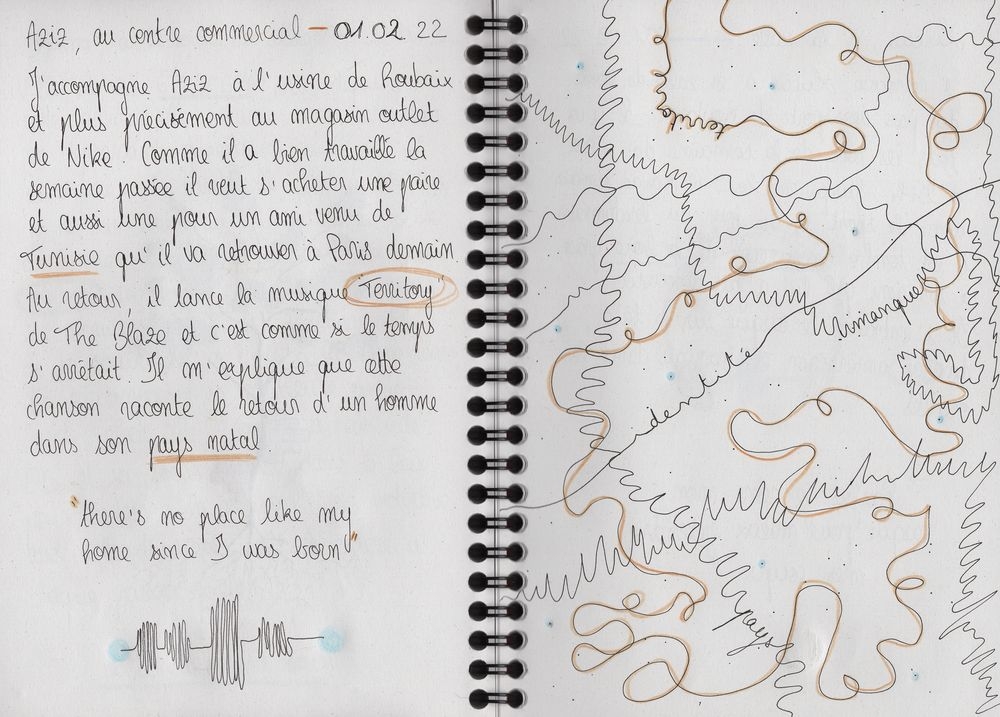 Aziz, au centre commercial – 01.02.22
J'accompagne Aziz à l'usine de Roubaix
et plus précisément au magasin outlet
de Nike. Comme il a bien travaillé la
semaine passée il veut s'acheter une paire
et aussi une pour un ami venu de
Tunisie qu'il va retrouver à Paris demain.
Au retour, il lance la musique "Territory"
de The Blaze et c'est comme si le temps
s'arrêtait. Il m'explique que cette
chanson raconte le retour d'un homme
dans son pays natal.
"there's no place like my
home since I was born"
territo
manque
identité
pays